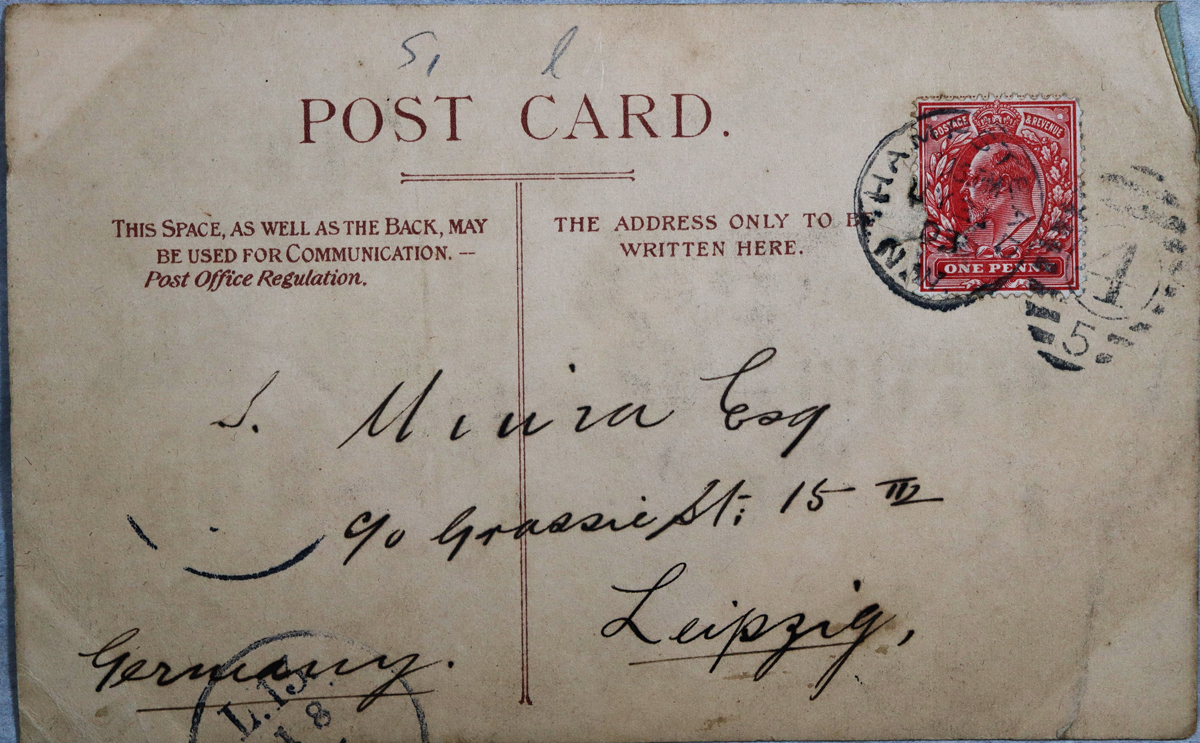 POST CARD.
THIS SPACE, AS WELL AS THE BACK, MAY
BE USED FOR COMMUNICATION. —
Post Office Regulation.
THE ADDRESS ONLY TO BE
WRITTEN HERE.
POSTAGE & REVENUE
ONE PENNY
HAM
4
5
S. Miura Esq
c/o Grassie St: 15 III
Leipzig,
Germany.
L.13
8